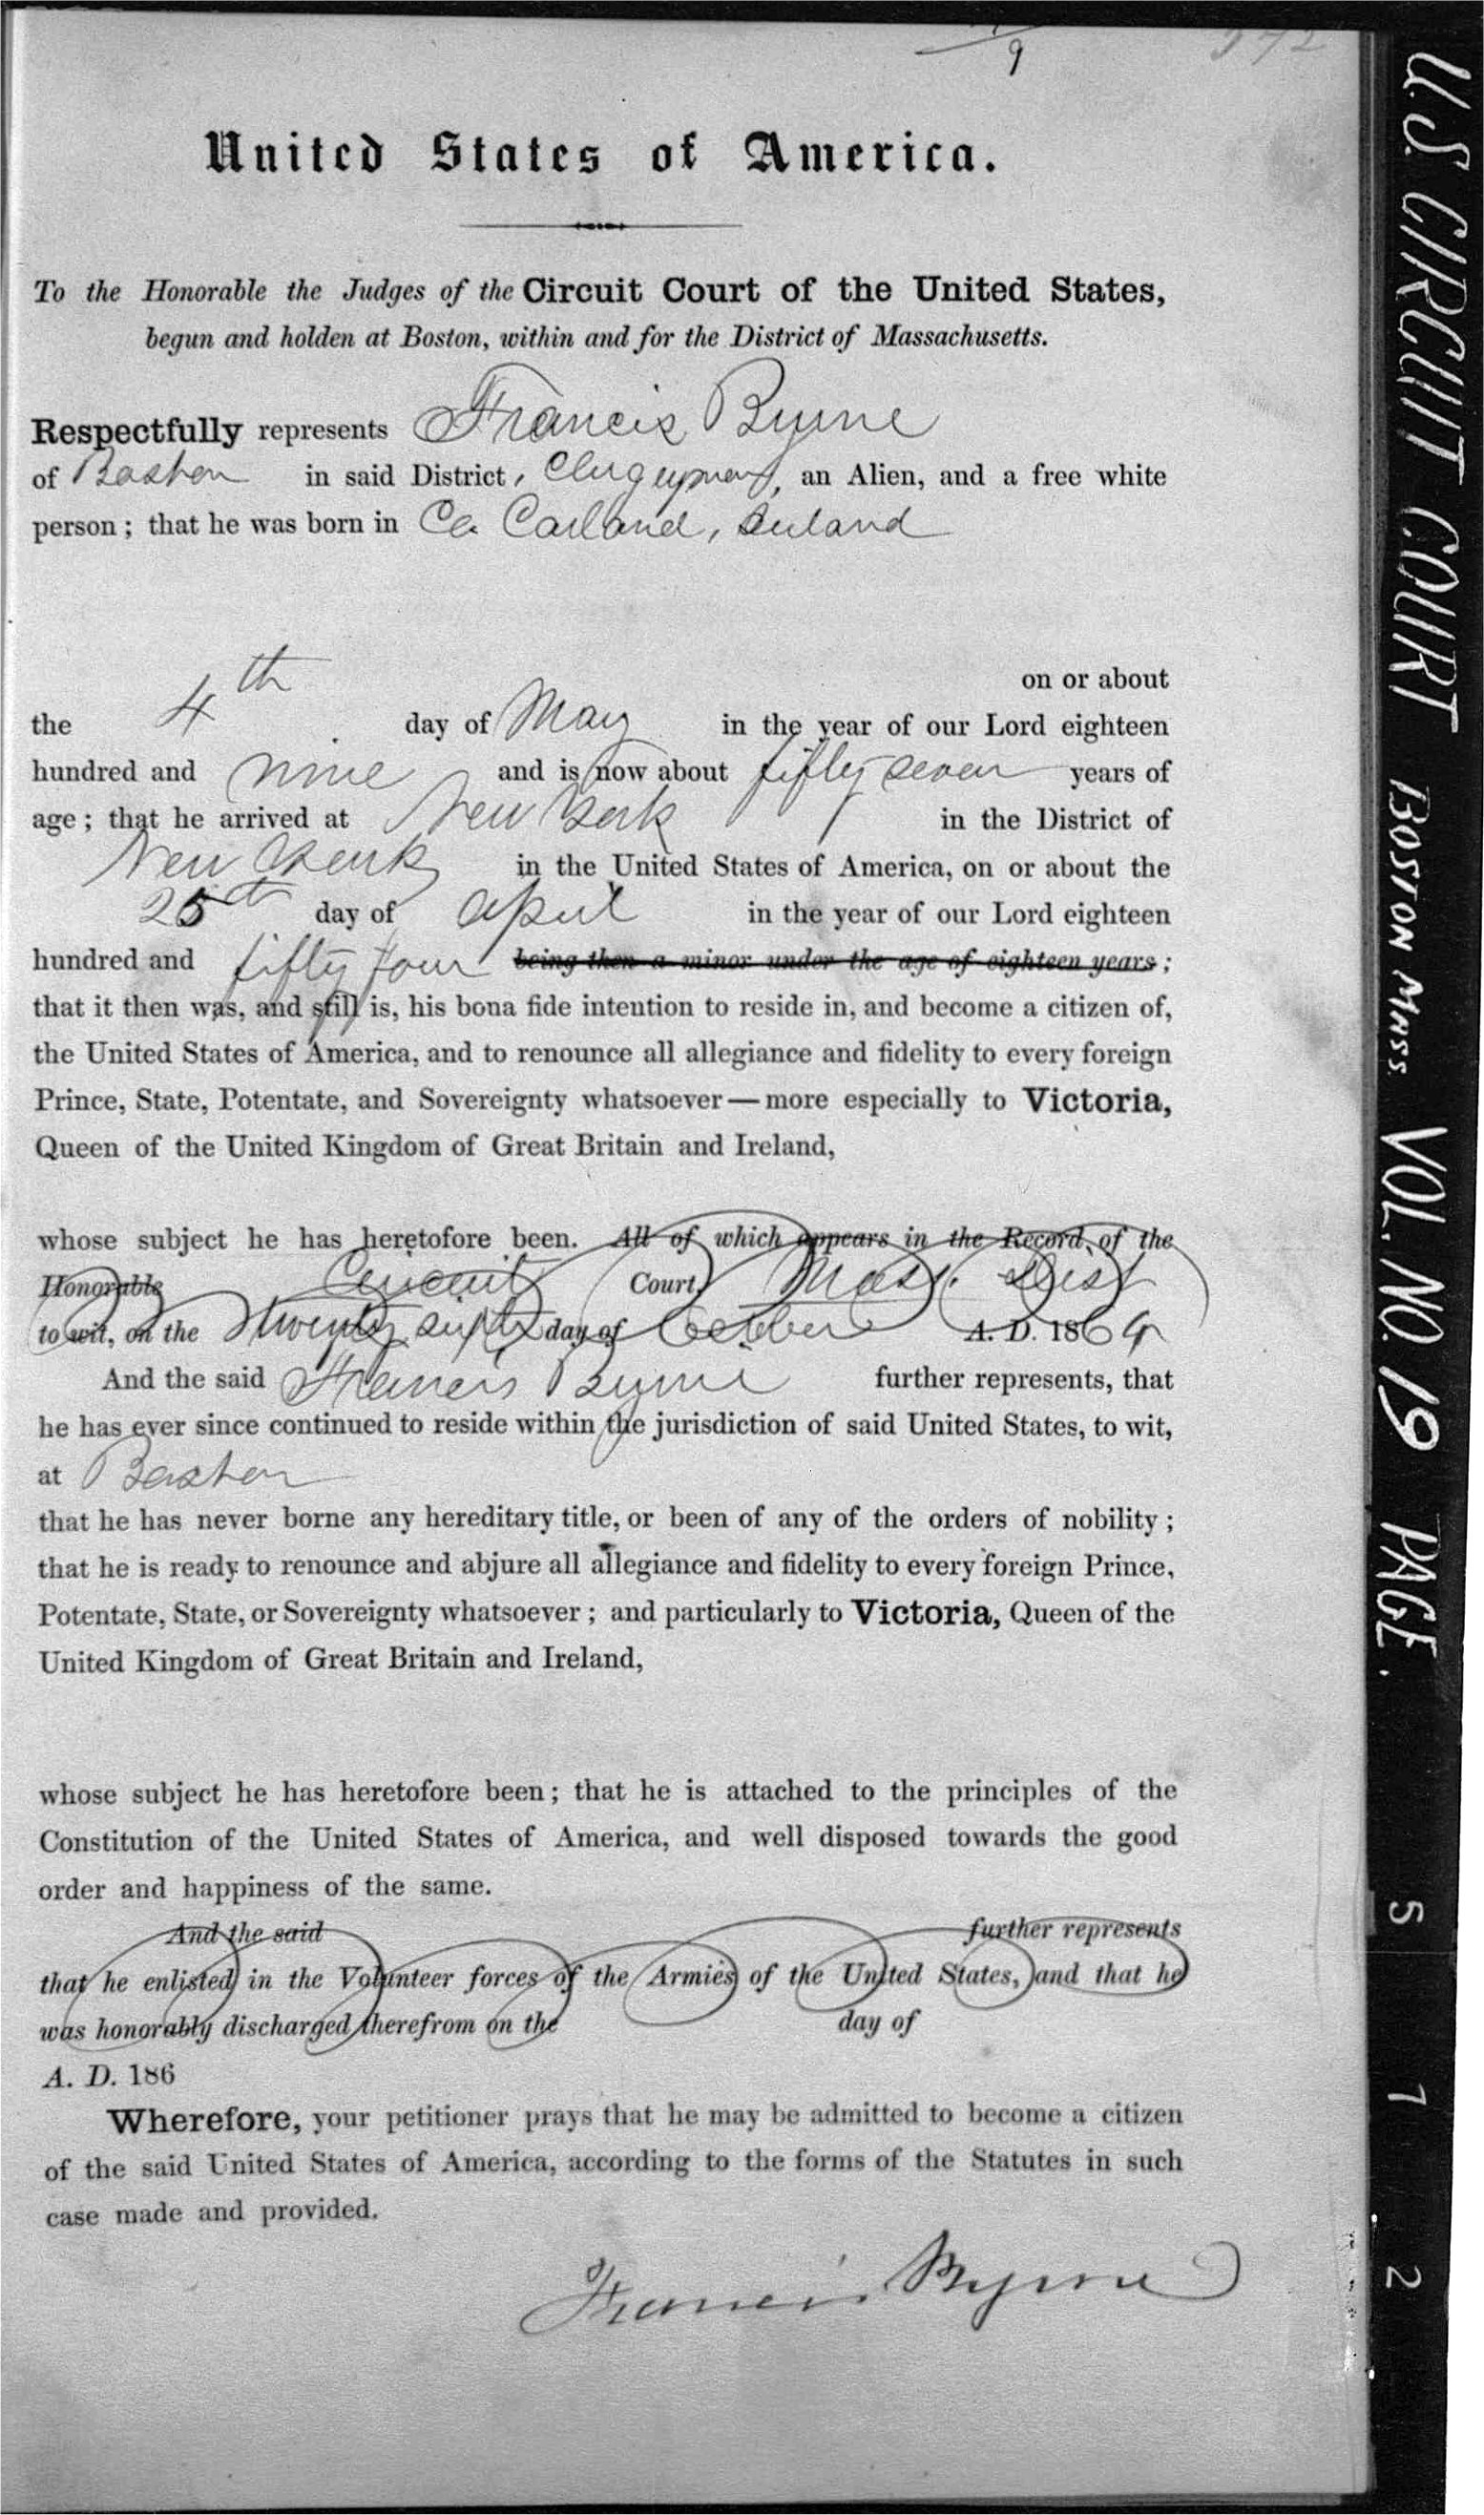 9
372
United States of America.
To the Honorable the Judges of the Circuit Court of the United States,
begun and holden at Boston, within and for the District of Massachusetts.
Respectfully represents Francis Byrne
of Boston in said District, Clergyman, an Alien, and a free white
person; that he was born in Co. Carland, Ireland
on or about
the 4th day of May in the year of our Lord eighteen
hundred and nine and is now about fifty seven years of
age; that he arrived at New York in the District of
New York in the United States of America, on or about the
25th day of April in the year of our Lord eighteen
hundred and fifty four being then a minor under the age of eighteen years;
that it then was, and still is, his bona fide intention to reside in, and become a citizen of,
the United States of America, and to renounce all allegiance and fidelity to every foreign
Prince, State, Potentate, and Sovereignty whatsoever—more especially to Victoria,
Queen of the United Kingdom of Great Britain and Ireland,
whose subject he has heretofore been. All of which appears in the Record of the
Honorable Circuit Court, Mass. Dist
to wit, on the twenty sixth day of October A. D. 1864
And the said Francis Byrne further represents, that
he has ever since continued to reside within the jurisdiction of said United States, to wit,
at Boston
that he has never borne any hereditary title, or been of any of the orders of nobility;
that he is ready to renounce and abjure all allegiance and fidelity to every foreign Prince,
Potentate, State, or Sovereignty whatsoever; and particularly to Victoria, Queen of the
United Kingdom of Great Britain and Ireland,
whose subject he has heretofore been; that he is attached to the principles of the
Constitution of the United States of America, and well disposed towards the good
order and happiness of the same.
And the said further represents
that he enlisted in the Volunteer forces of the Armies of the United States, and that he
was honorably discharged therefrom on the day of
A. D. 186
Wherefore, your petitioner prays that he may be admitted to become a citizen
of the said United States of America, according to the forms of the Statutes in such
case made and provided.
Francis Byrne
U.S. CIRCUIT COURT BOSTON MASS. VOL. NO. 19 PAGE. 5 1 2